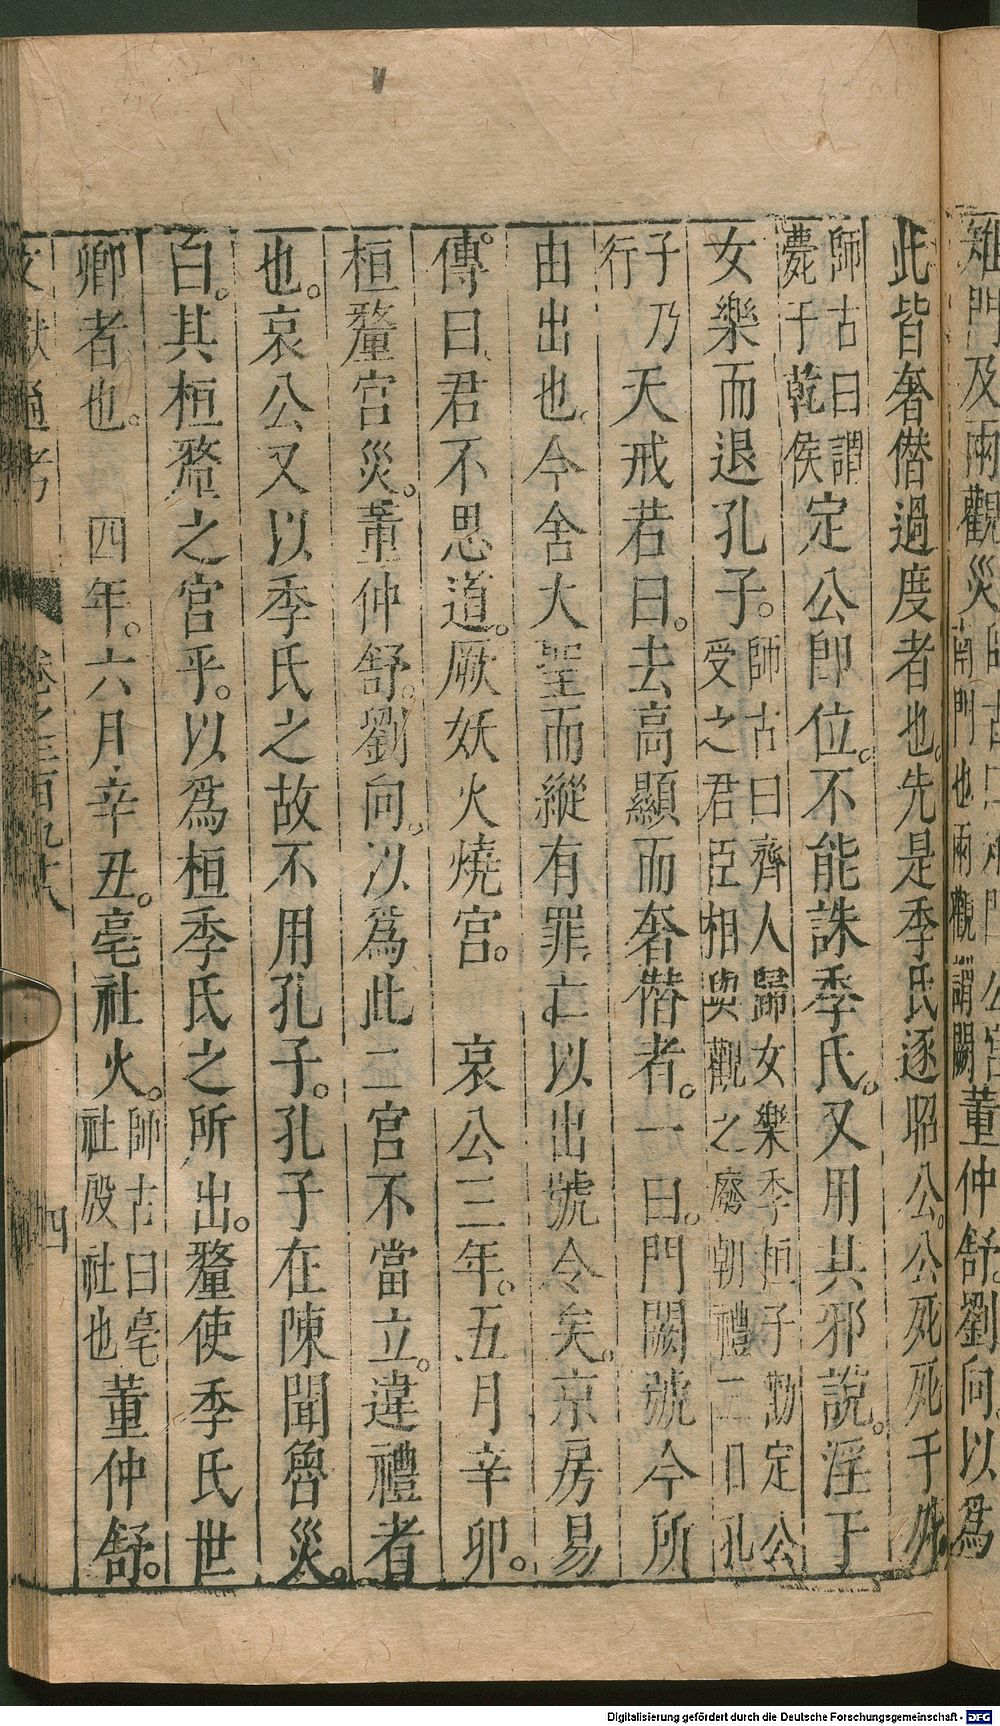 雉門及兩觀災師古曰雉門公宮南門也兩觀謂闕董仲舒。劉向。以爲
此皆奢僭過度者也。先是季氏逐昭公。公死死于外
師古曰謂薨于乾侯定公卽位。不能誅季氏。又用其邪說。淫于
女樂而退孔子。師古曰齊人歸女樂季桓子勸定公受之君臣相與觀之廢朝禮三日孔
子乃行天戒若曰。去高顯而奢僭者。一曰。門闕號令所
由出也。今舍大聖而縱有罪亡以出號令矣。京房易
傳。曰、君不思道。厥妖火燒宮。 哀公三年。五月辛卯。
桓釐宮災。董仲舒。劉向。以爲此二宮不當立。違禮者
也。哀公又以季氏之故不用孔子。孔子在陳聞魯災。
曰。其桓釐之宮乎。以爲桓季氏之所出。釐使季氏世
卿者也。 四年。六月辛丑。亳社火。師古曰亳社殷社也董仲舒。
文獻通考 卷之三百九十八 四
Digitalisierung gefördert durch die Deutsche Forschungsgemeinschaft - DFG